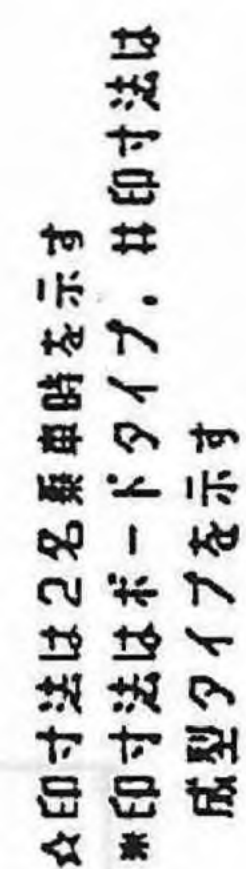 ☆印寸法は2名乗車時を示す
※印寸法はボードタイプ．#印寸法は
成型タイプを示す